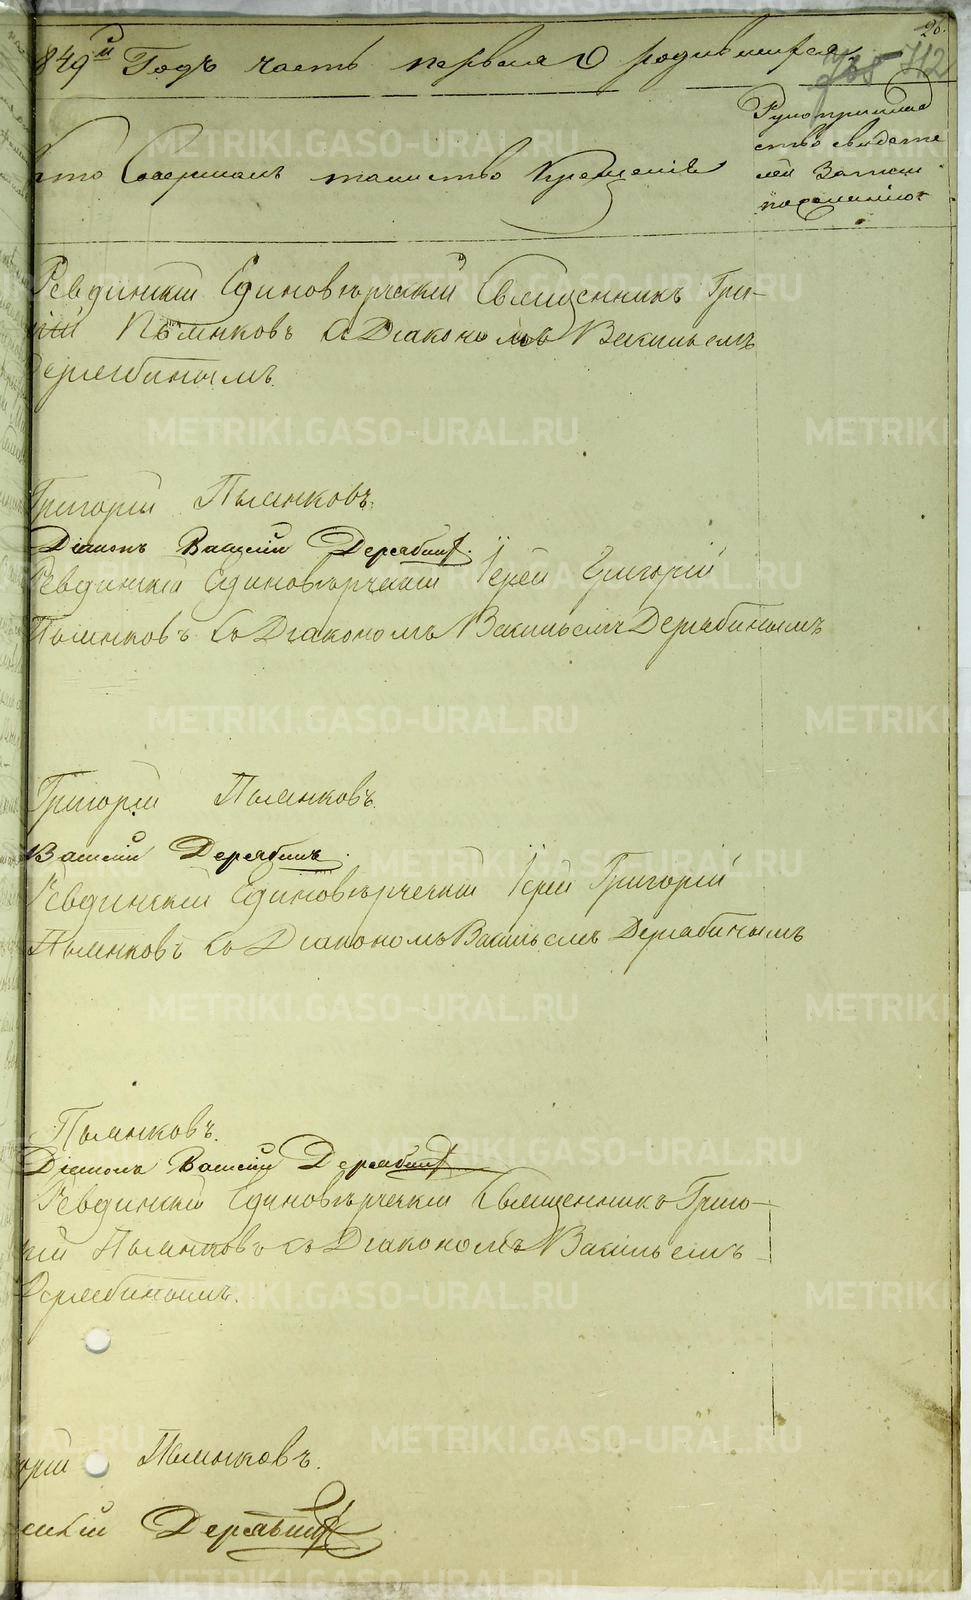 26.
849й Годъ часть первая О родившихся 712
Рукоприклад
ство свидете
лей Записи
по желанию
кто Совершалъ таинство Крещенія
Ревдинскій Единовѣрческій Священникъ Гри-
рій Пьянковъ съ Діакономъ Васильемъ
Дерябинымъ.
Григорій Пьянковъ.
Діаконъ Василій Дерябинъ.
Ревдинскій Единовѣрческій Іерей Григорій
Пьянковъ Со Діакономъ Васильемъ Дерябинымъ
Григорій Пьянковъ.
Василій Дерябинъ.
Ревдинскій Единовѣрческій Іерей Григорій
Пьянковъ Со Діакономъ Васильемъ Дерябинымъ
Пьянковъ.
Діаконъ Василій Дерябинъ
Ревдинскій Единовѣрческій Священникъ Григо-
рій Пьянковъ съ Діакономъ Васильемъ
Дерябинымъ.
орій Пьянковъ.
силій Дерябинъ
METRIKI.GASO-URAL.RU